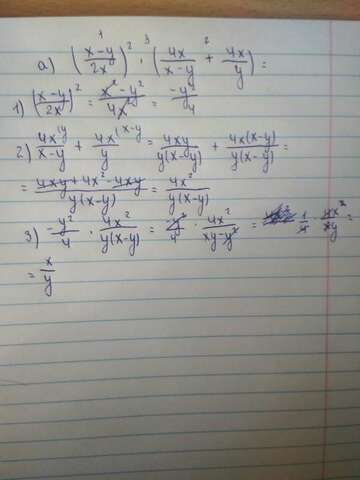 а) ((x-y)/2x)² · (4x/(x-y) + 4x/y) =
1) ((x-y)/2x)² = (x²-y²)/4x² = -y²/4
2) 4x/(x-y) + 4x/y = 4xy/y(x-y) + 4x(x-y)/y(x-y) =
= (4xy+4x²-4xy)/y(x-y) = 4x²/y(x-y)
3) -y²/4 · 4x²/y(x-y) = -y²/4 · 4x²/(xy-y²) = 1/4 · 4x²/xy =
= x/y